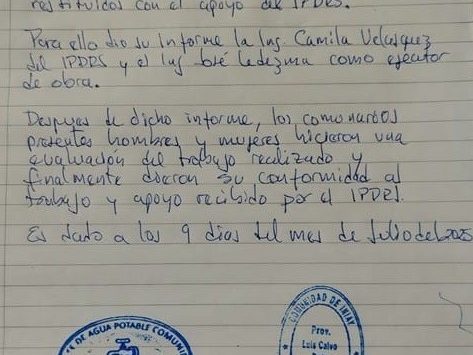 restituidos con el apoyo de IPDRS.
Para ello dio su informe la Ing. Camila Velasquez
del IPDRS y el Ing José Ledezma como ejecutor
de obra.
Despues de dicho informe, los comunarios
presentes hombres y mujeres hicieron una
evaluación del trabajo realizado y
finalmente dieron su conformidad al
trabajo y apoyo recibido por el IPDRS.
Es dado a los 9 dias del mes de Julio del 2025
DE AGUA POTABLE COMUNI
COMUNIDAD DE IÑIAY
Prov.
Luis Calvo